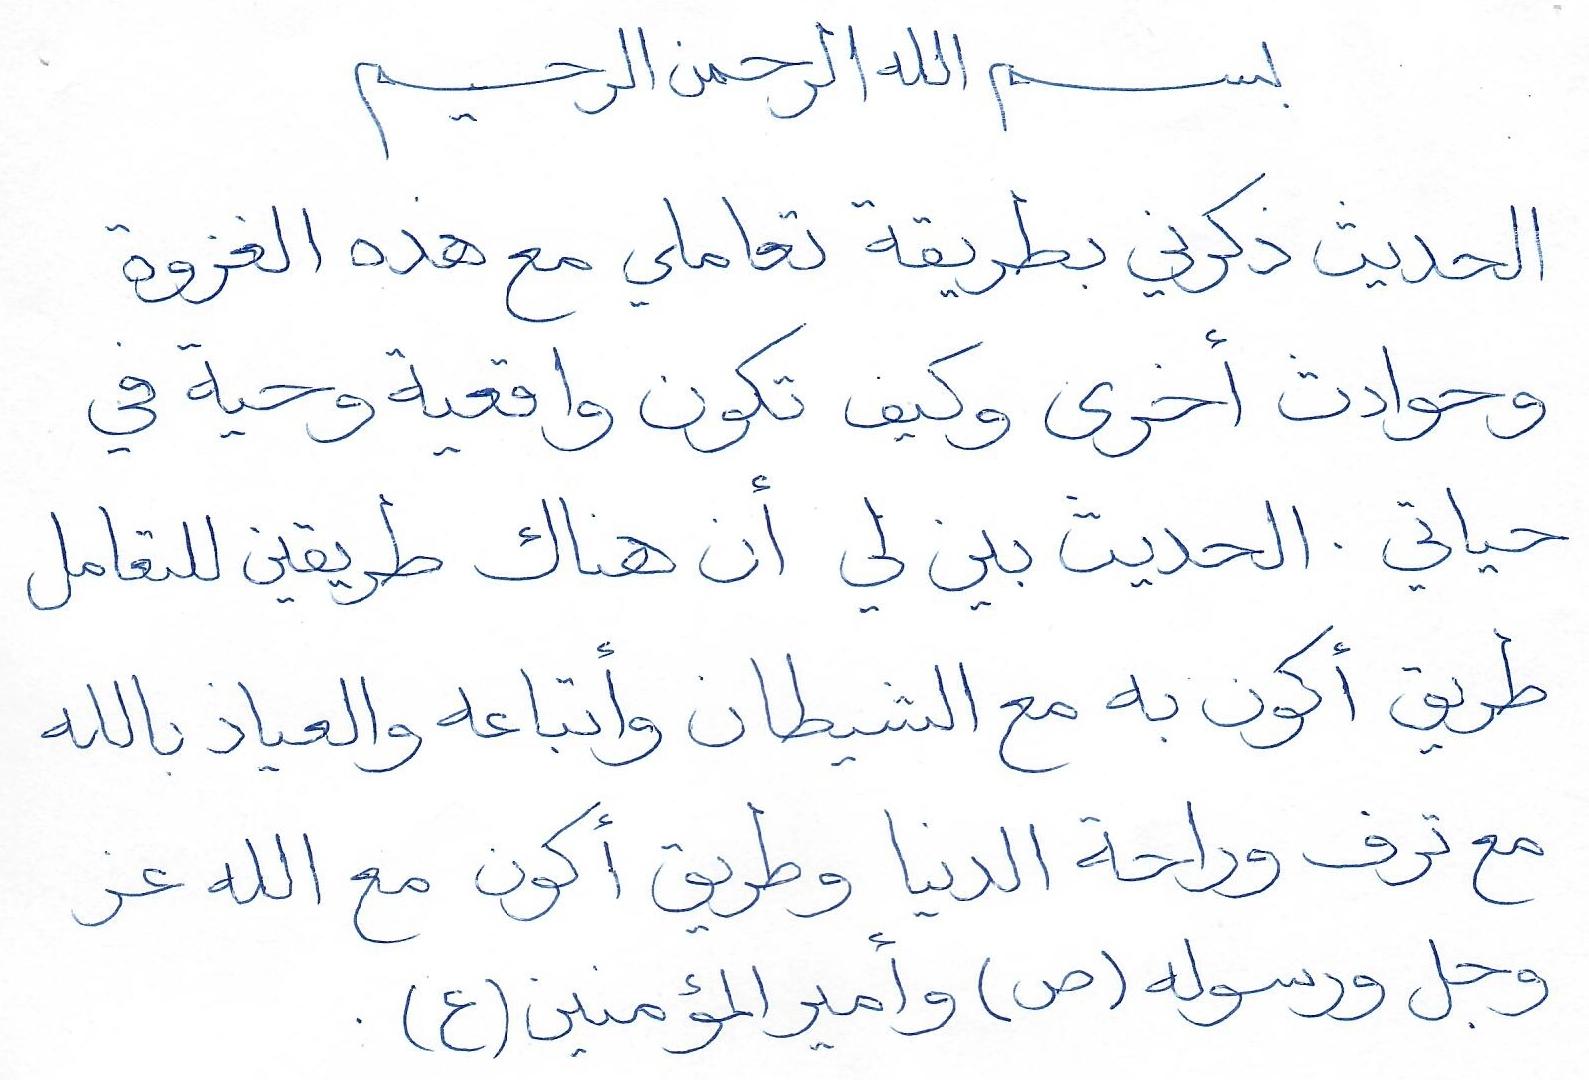 بسم الله الرحمن الرحيم
الحديث ذكرني بطريقة تعاملي مع هذه الغزوة
وحوادث أخرى وكيف تكون واقعية وحية في
حياتي . الحديث بين لي أن هناك طريقين للتعامل
طريق أكون به مع الشيطان وأتباعه والعياذ بالله
مع ترف وراحة الدنيا وطريق أكون مع الله عز
وجل ورسوله (ص) وأمير المؤمنين (ع) .